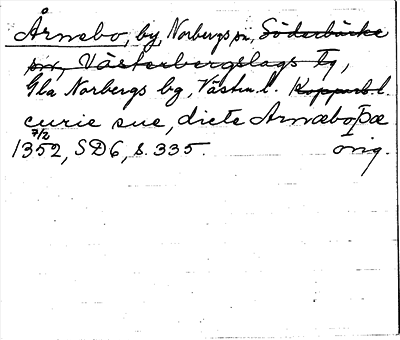 Årnebo, by, Norbergs sn, Söderbärke
sn, Västerbergslags tg,
Gla Norbergs bg, Västm. l. Kopparb. l.
curie sue, dicte Arnæboþæ
7/2
1352, SD6, s. 335. orig.